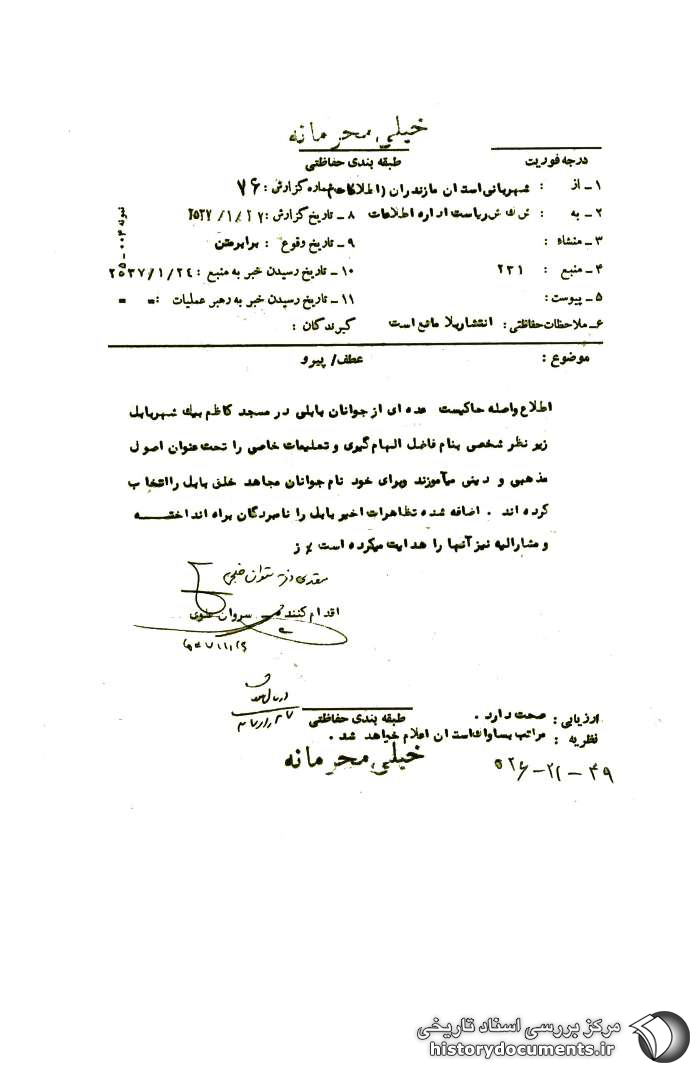 خیلی محرمانه
درجه فوریت طبقه بندی حفاظتی
۱ـ از : شهربانی استان مازندران (اطلاعات) شماره گزارش : ۷۶
۲ـ به : ریاست اداره اطلاعات ۸ ـ تاریخ گزارش : ۲۵۳۷/۱/۲۷
۳ـ منشاء : ۹ ـ تاریخ وقوع : برابر متن
۴ـ منبع : ۲۳۱ ۱۰ ـ تاریخ رسیدن خبر به منبع : ۲۵۳۷/۱/۲۴
۵ ـ پیوست : ۱۱ ـ تاریخ رسیدن خبر به رهبر عملیات : = =
۶ـ ملاحظات حفاظتی : انتشار بلا مانع است گیرندگان :
موضوع : عطف / پیرو
اطلاع واصله حاکیست عده ای از جوانان بابلی در مسجد کاظم بیک شهر بابل
زیر نظر شخصی بنام فاضل الهام گیری و تعلیمات خاصی را تحت عنوان اصول
مذهبی و دینی میآموزند و برای خود نام جوانان مجاهد خلق بابل را انتخاب
کرده اند . اضافه شده تظاهرات اخیر بابل را نامبردگان براه انداخته
و مشارالیه نیز آنها را هدایت میکرده است
اقدام کننده سروان علوی
ارزیابی : صحت دارد .
نظریه : مراتب بساواک استان اعلام خواهد شد .
طبقه بندی حفاظتی
خیلی محرمانه
۴۹ - ۲۱ - ۵۲۶
نمونه ۰۰۴ - ۵۵
مرکز بررسی اسناد تاریخی
historydocuments.ir